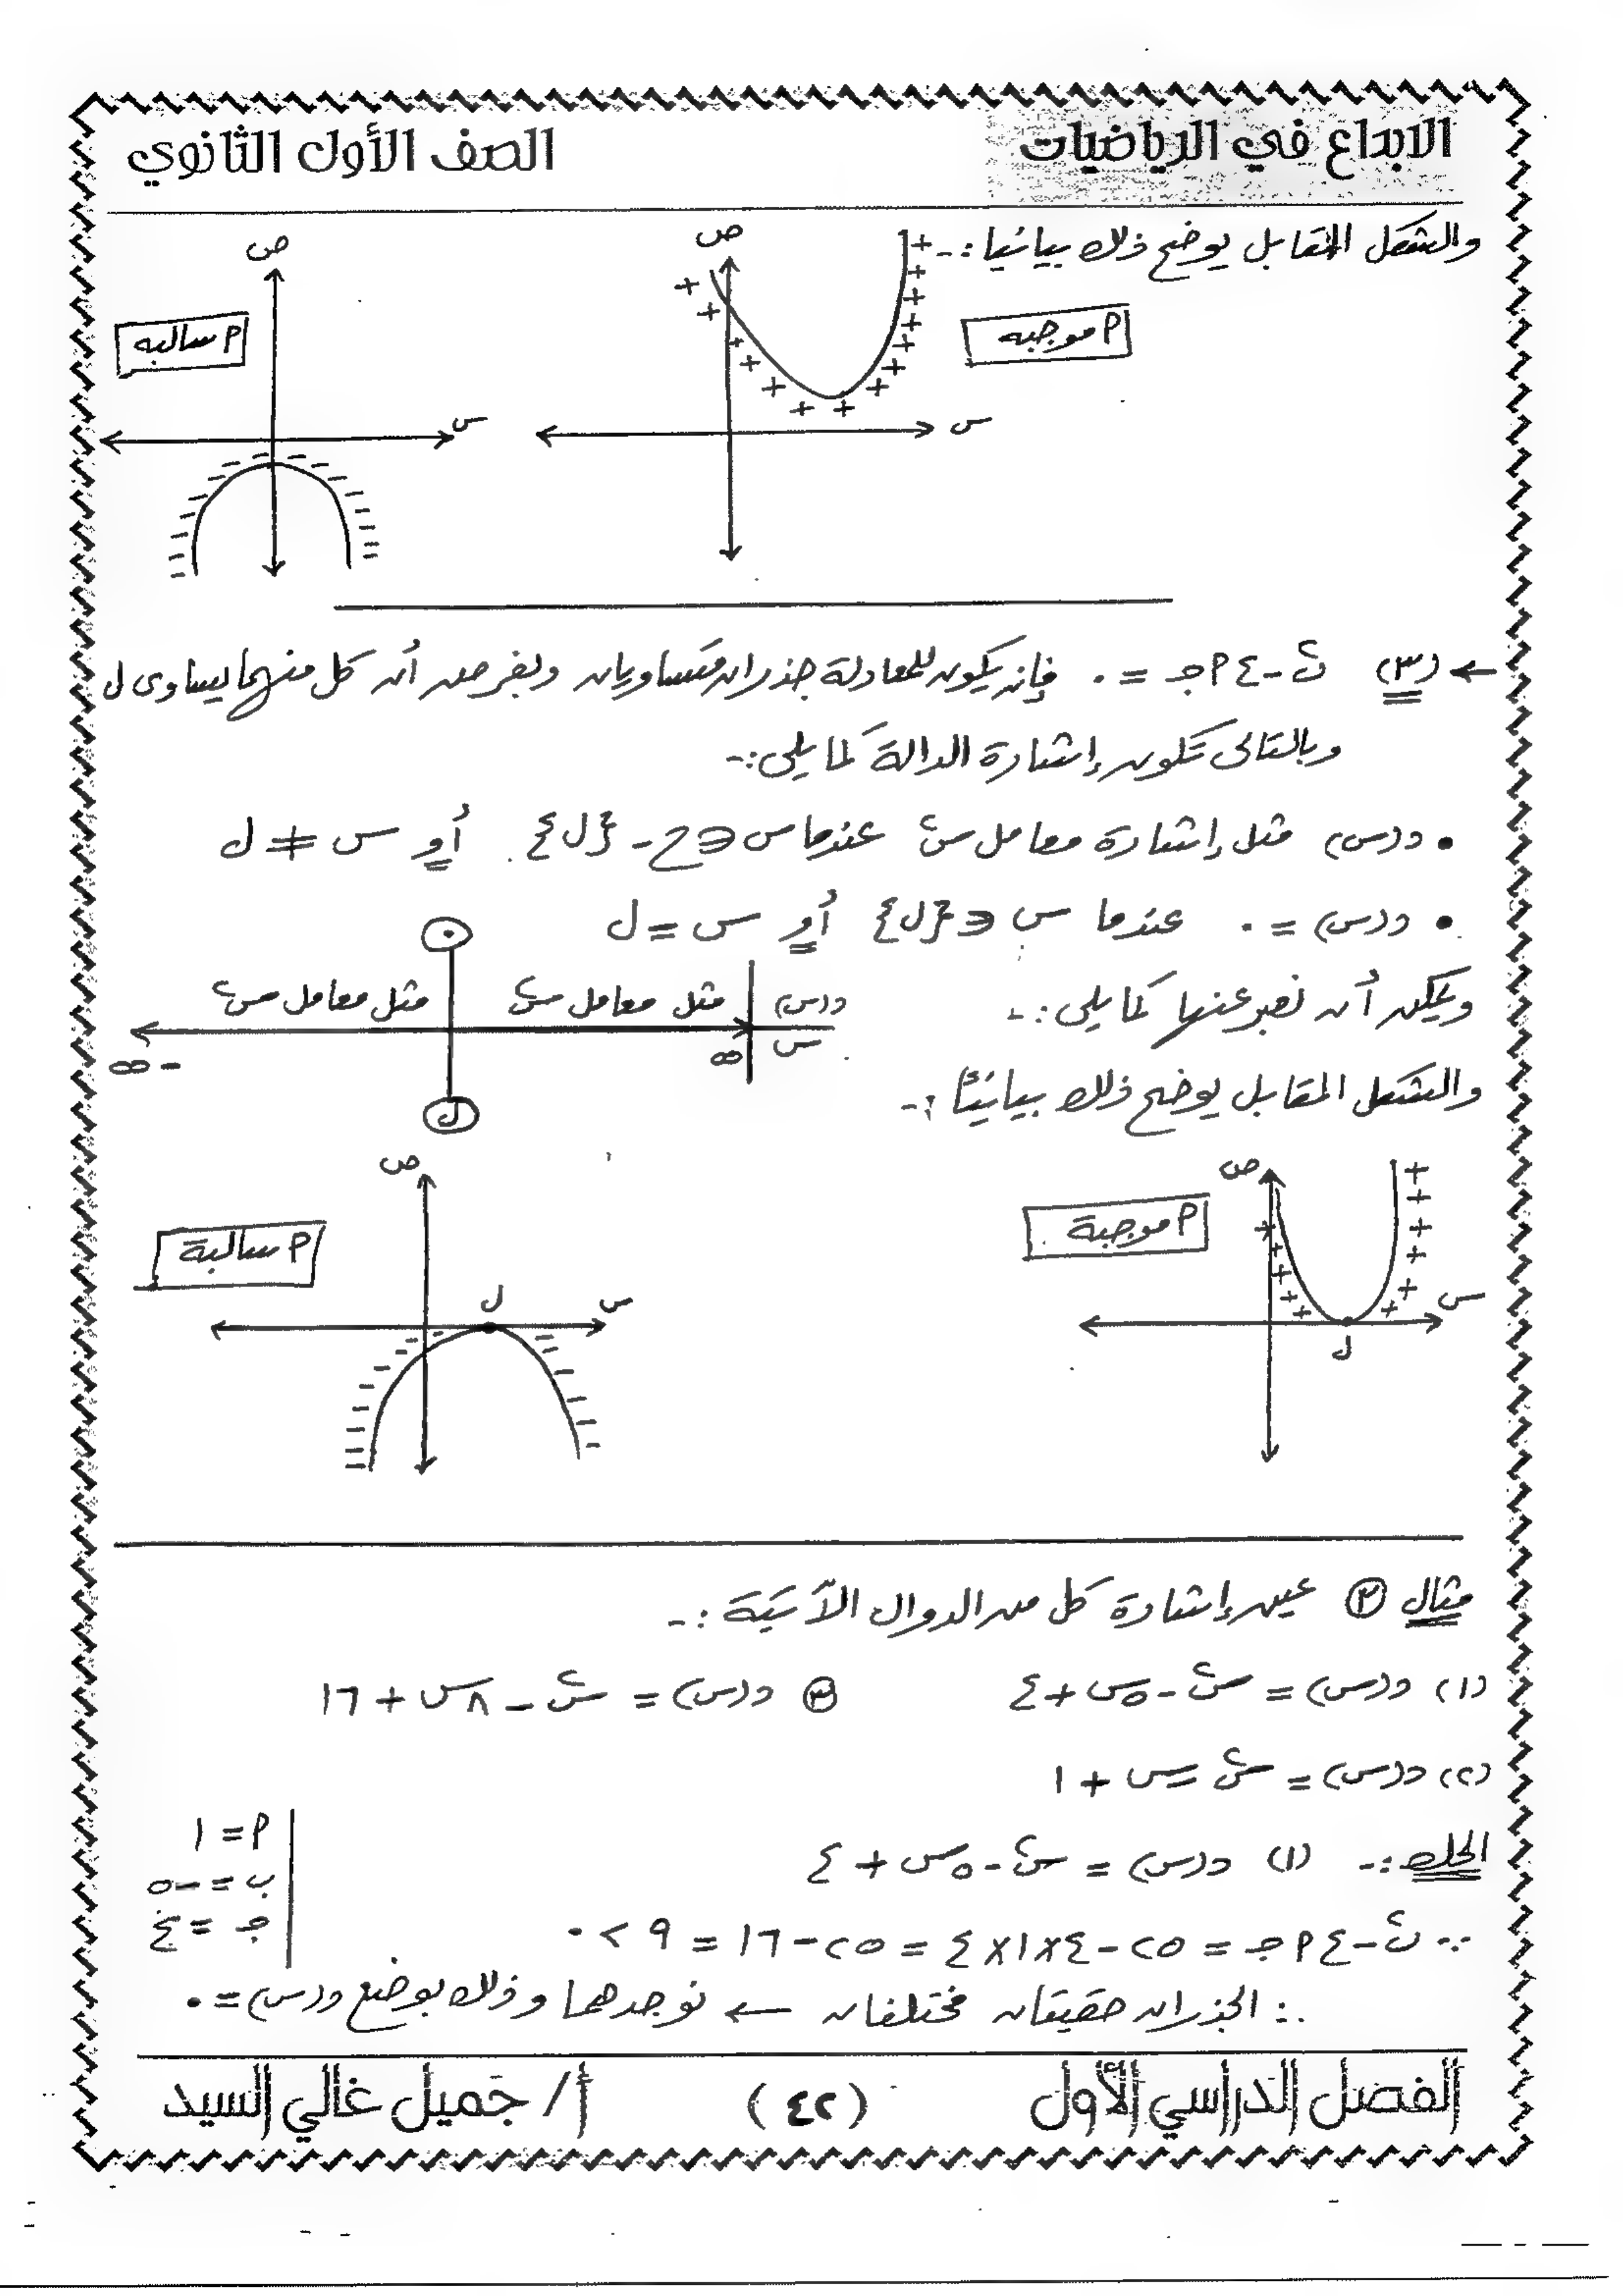 الابداع في الرياضيات
الصف الأول الثانوي
والشكل المقابل يوضح ذلك بيانيا :-
ص
س
م موجبه
+ + + + + + + + + + + + + + + +
ص
س
م سالبه
← (٣) ب٢ - ٤ م جـ = ٠ فإنه يكون للمعادلة جذران متساويان وبفرض أن كل منهما يساوى ل
وبالتالى تكون إشارة الدالة كما يلى :-
• د(س) مثل إشارة معامل س٢ عندما س ∈ ح - {ل} أو س ≠ ل
• د(س) = ٠ عندما س ∈ {ل} أو س = ل
ويمكن أن نعبر عنها كما يلى :-
د(س) مثل معامل س٢ ٠ مثل معامل س٢
س ∞ ل - ∞
والشكل المقابل يوضح ذلك بيانيًا :-
ص
س
ل
م موجبة
ص
س
ل
م سالبة
مثال ٢ عين إشارة كل من الدوال الآتية :-
(١) د(س) = س٢ - ٥س + ٤
٣ د(س) = س٢ - ٨س + ١٦
(٢) د(س) = س٢ - س + ١
الحل :- (١) د(س) = س٢ - ٥س + ٤
م = ١
ب = -٥
جـ = ٤
∵ ب٢ - ٤ م جـ = ٢٥ - ٤×١×٤ = ٢٥ - ١٦ = ٩ > ٠
∴ الجذران حقيقان مختلفان ← نوجدهما وذلك بوضع د(س) = ٠
الفصل الدراسي الأول
(٤٢)
أ/ جميل غالي السيد